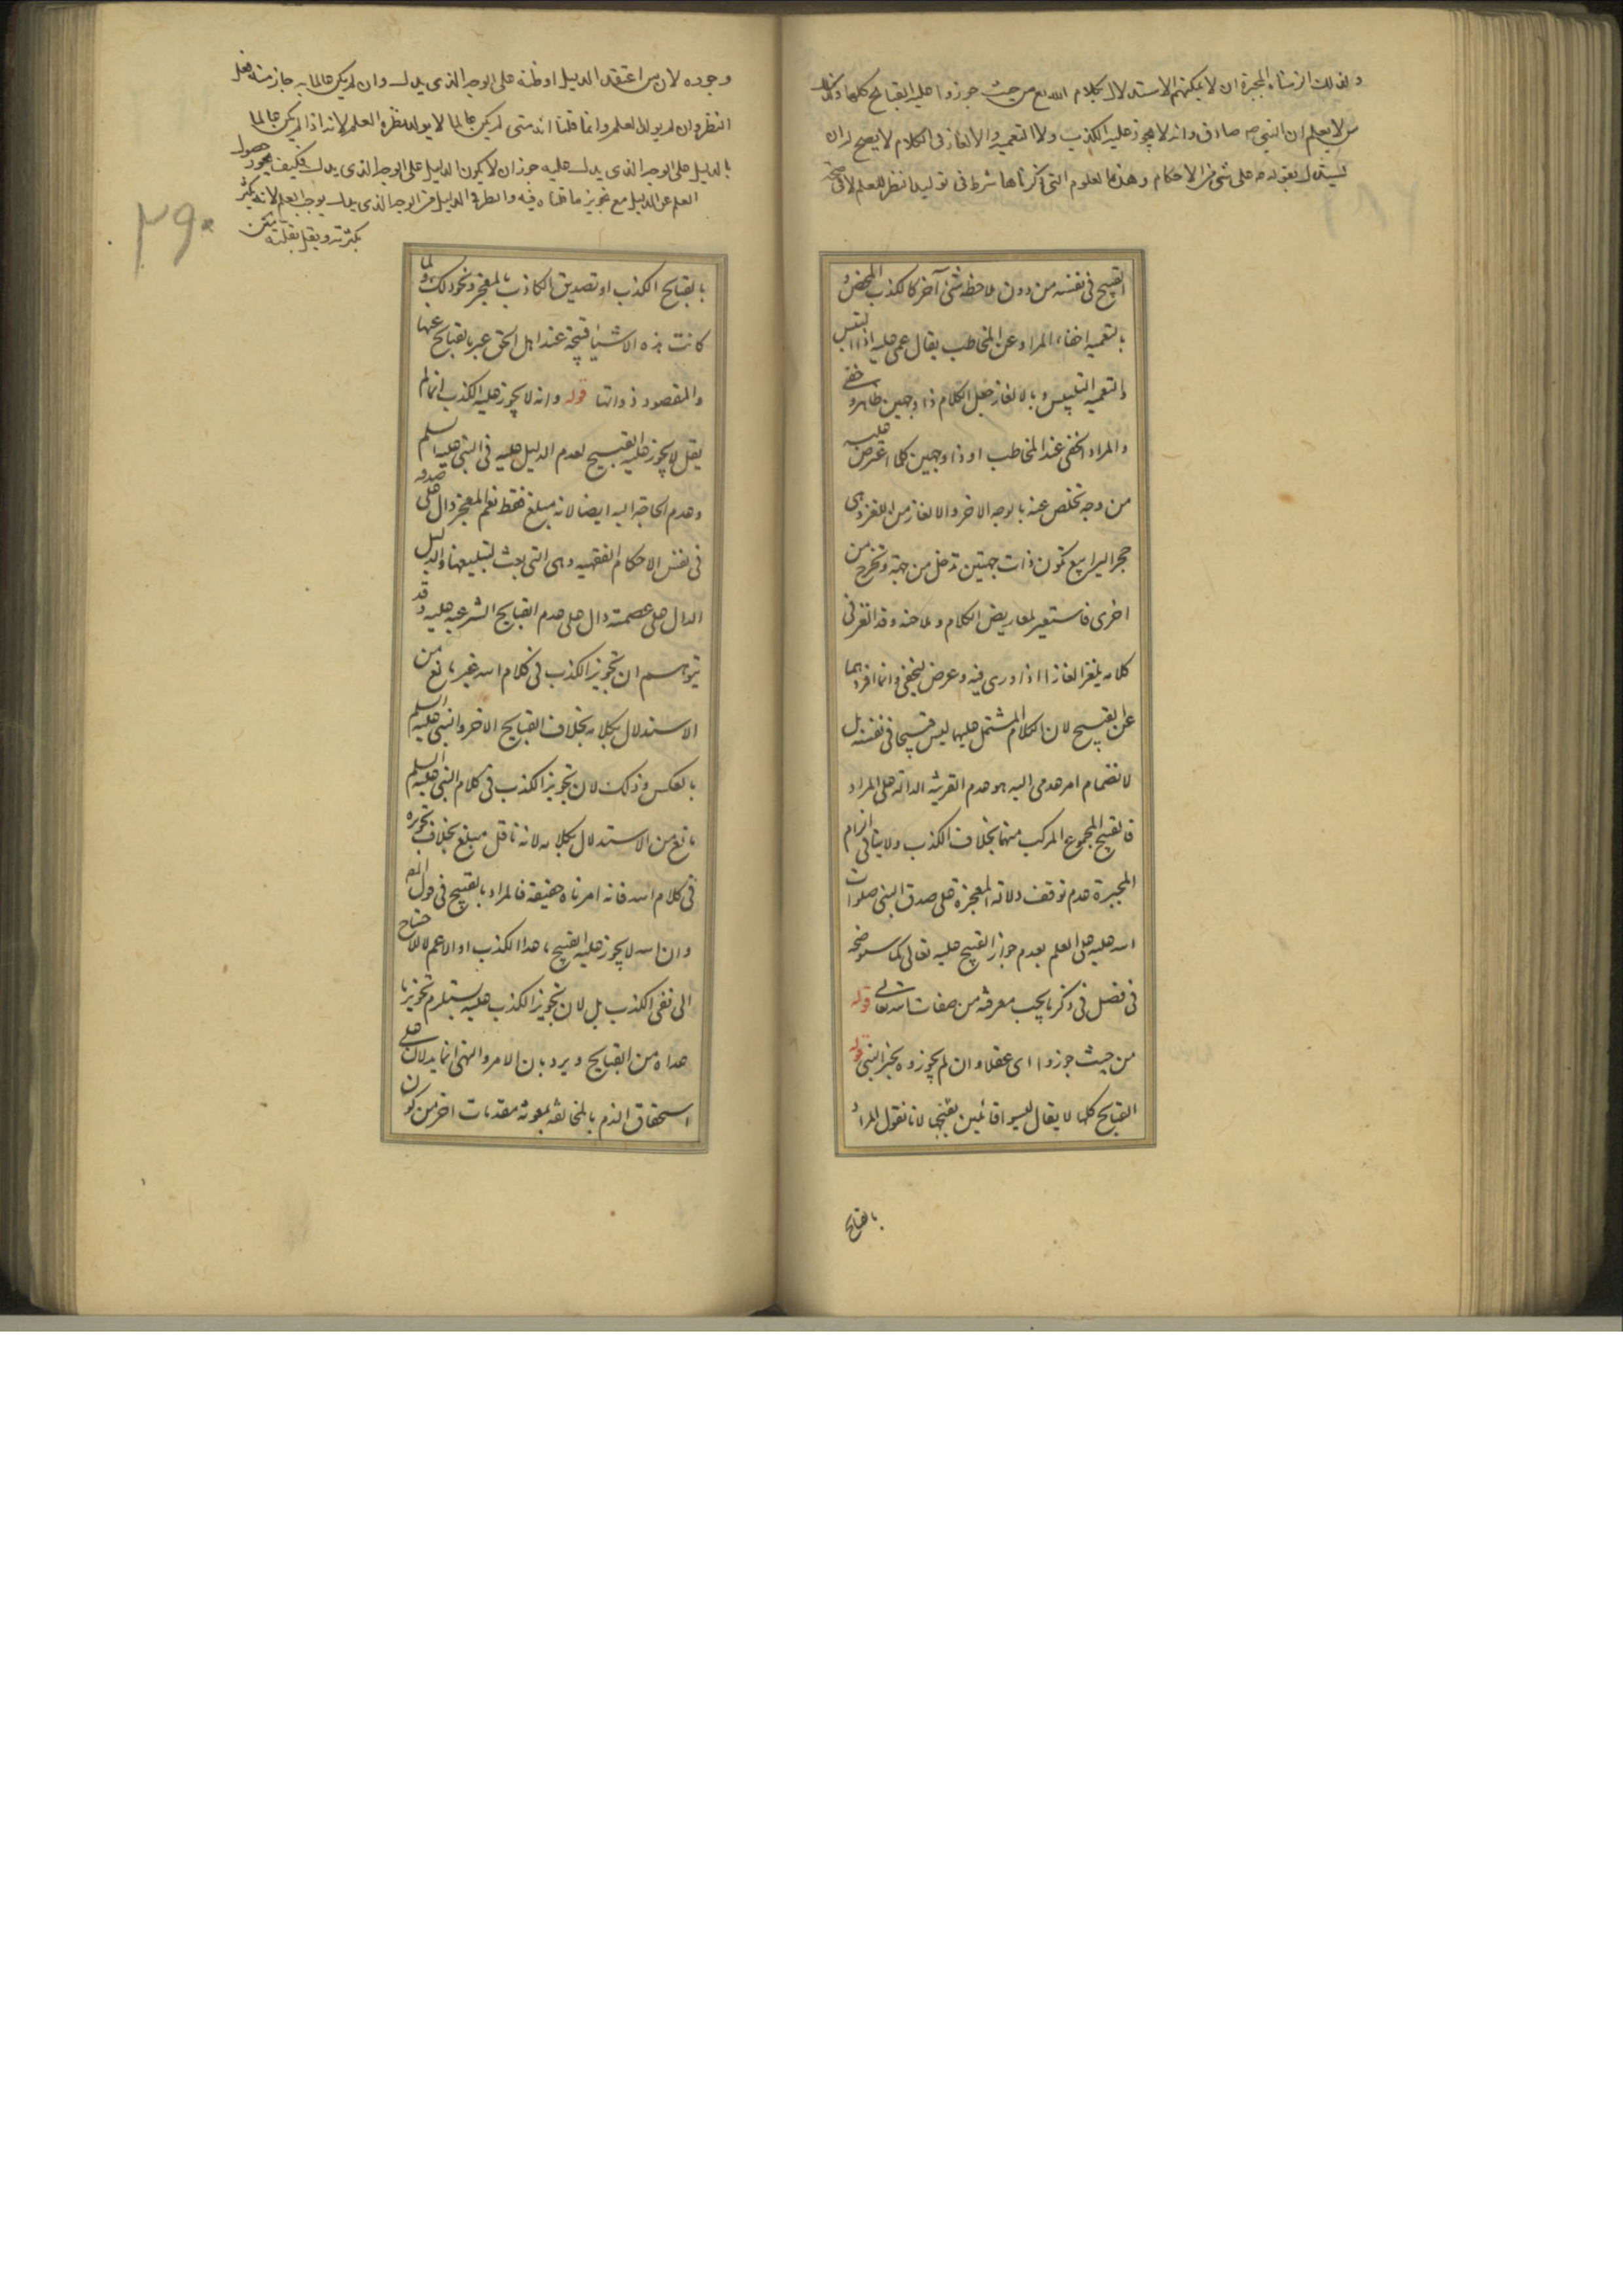 ولذلك الزمناه المجبرة ان لا يمكنهم الاستدلال بكلام الله تع من حيث جوزوا عليه القبائح كلها وكذلك
من لا يعلم ان النبي ص صادق وانه لا يجوز عليه الكذب ولا التعمية والالغاز في الكلام لا يصح له ان
يستدل بقوله ص على شيء من الاحكام وهذه العلوم التي ذكرناها شرط في توليد النظر للعلم لا في صحة
القبيح في نفسه من دون ملاحظة شيء آخر كالكذب المحض و
بالتعمية اخفاء المراد عن المخاطب يقال عمي عليه اذا التبس
والتعمية التلبيس وبالالغاز جعل الكلام ذا وجهين ظاهر وخفي
والمراد الخفي عند المخاطب او ذا وجهين كلما اعترض عليه
من وجه تخلص عنه بالوجه الاخر والالغاز من اللغز وهي
حجر اليرابيع تكون ذات جهتين تدخل من جهة وتخرج من
اخرى فاستعير لمعاريض الكلام وملاحنه وقد الغز في
كلامه يلغز الغازا اذا ورى فيه وعرض ليخفى وانما افردهما
عن القبيح لان الكلام المشتمل عليهما ليس قبيحا في نفسه بل
لانضمام امر عدمي اليه هو عدم القرينة الدالة على المراد
فالقبيح المجموع المركب منهما بخلاف الكذب ولا ينافي الزام
المجبرة عدم توقف دلالة المعجزة على صدق النبي صلوات
الله عليه على العلم بعدم جواز القبيح عليه تعالى كما سنوضحه
في فصل في ذكر ما يجب معرفته من صفات الله تعالى قوله
من حيث جوزوا اي عقلا وان لم يجوزوه بخبر النبي قوله
القبايح كلها لا يقال ليسوا قائلين بقبحها لانا نقول المراد
بالقبايح
وجوده لان من اعتقد الدليل او ظنه على الوجه الذي يدل وان لم يكن عالما به جاز منه فعل
النظر وان لم يولد العلم وانما قلنا انه متى لم يكن عالما لا يولد نظره العلم لانه اذا لم يكن عالما
بالدليل على الوجه الذي يدل عليه جوز ان لا يكون الدليل على الوجه الذي يدل فكيف يجوز حصول
العلم عن الدليل مع تجويز ما قلناه فيه والنظر في الدليل من الوجه الذي يدل يوجب العلم لانه يكثر
بكثرته ويقل بقلته متن
٢٩٠
بالقبايح الكذب او تصديق الكاذب بالمعجزة ونحو ذلك ولما
كانت هذه الاشياء قبيحة عند اهل الحق عبر بالقبايح عنها
والمقصود ذواتها قوله وانه لا يجوز عليه الكذب انما لم
يقل لا يجوز عليه القبيح لعدم الدليل عليه في النبي عليه السلم
وعدم الحاجة اليه ايضا لانه مبلغ فقط نعم المعجز دال على صدقه
في نفس الاحكام الفقهية وهي التي بعث لتبليغها والدليل
الدال على عصمته دال على عدم القبايح الشرعية عليه وقد
يتوهم ان تجويز الكذب في كلام الله غير مانع من
الاستدلال بكلامه بخلاف القبايح الاخر والنبي عليه السلم
بالعكس وذلك لان تجويز الكذب في كلام النبي عليه السلم
مانع من الاستدلال بكلامه لانه ناقل مبلغ بخلاف تجويزه
في كلام الله فانه امر ناه حقيقة فالمراد بالقبيح في قول المص
وان الله لا يجوز عليه القبيح ما عدا الكذب او الاعم لا للاحتياج
الى نفي الكذب بل لان تجويز الكذب عليه يستلزم تجويز ما
عداه من القبايح ويرد بان الامر والنهي انما يدلان على
استحقاق الذم بالمخالفة بمعونة مقدمات اخر من كون